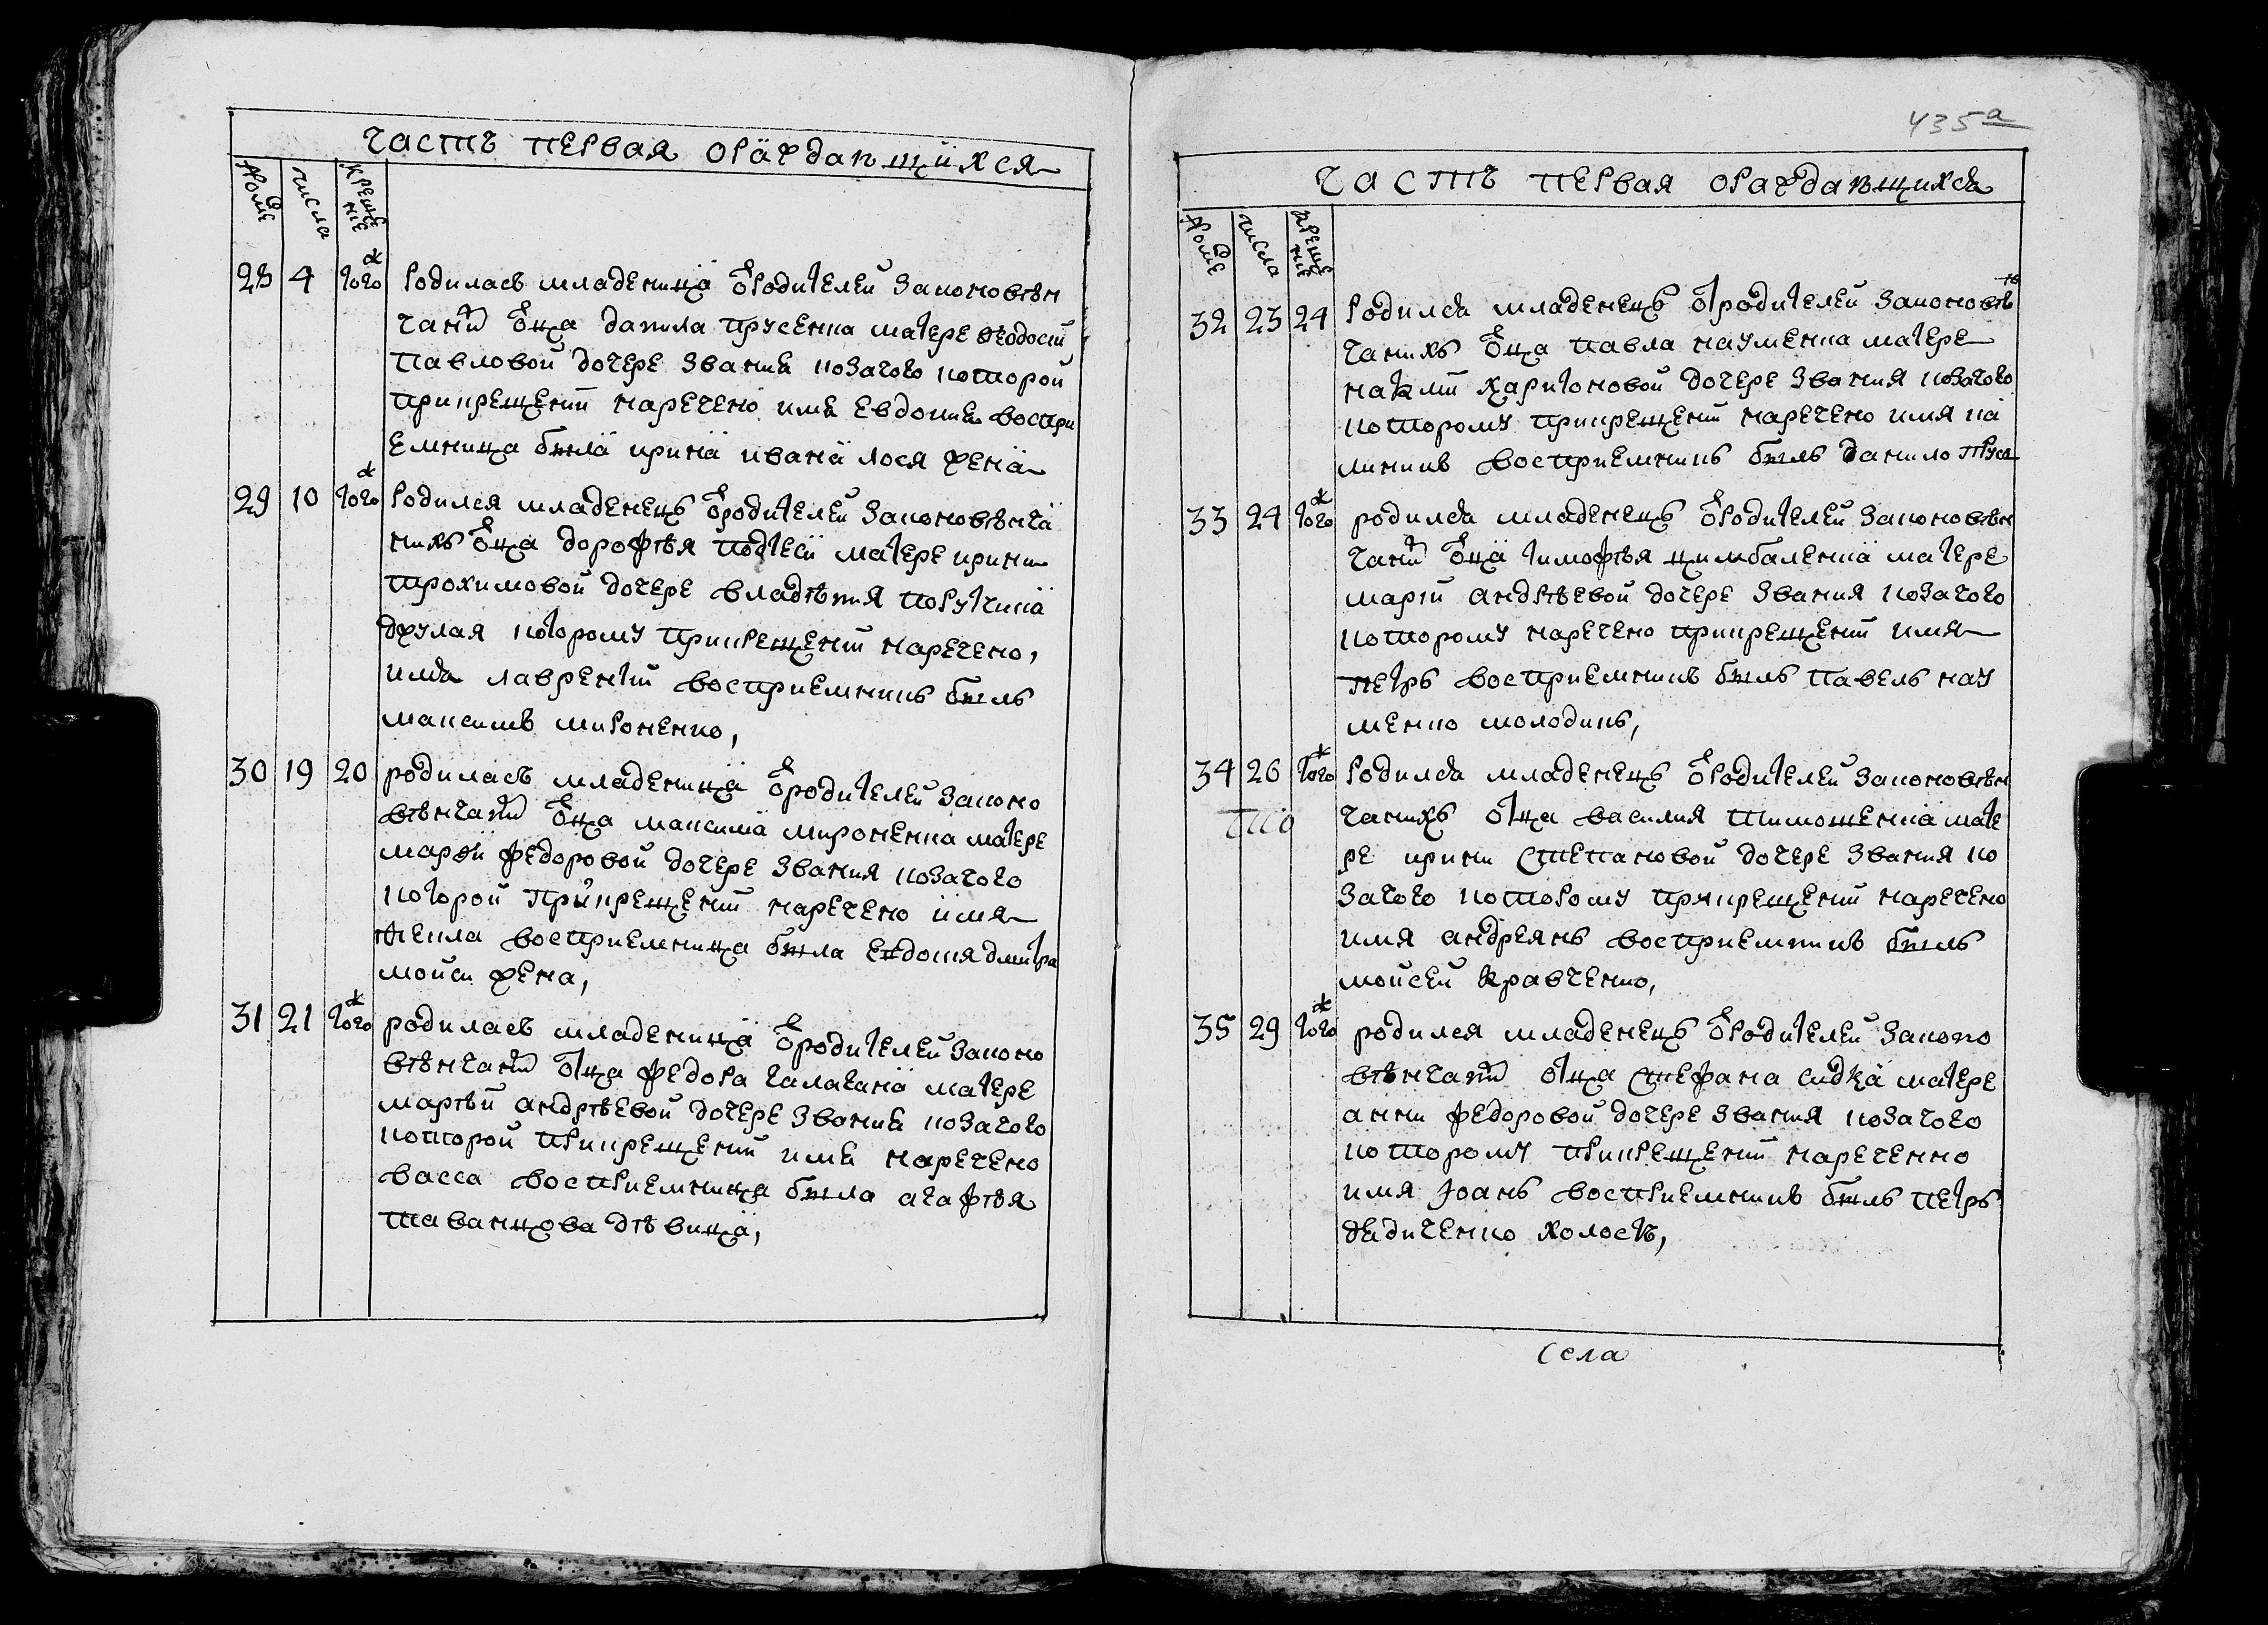 часть первая ораждающихся
номе
числа
крещение
28 4 того родилась младеница от родителей законовѣн
чаних отца данила трусенка матере ѳеодосии
павловой дочере звания козачого которой
прикрещении наречено имя евдокия воспри
емница была ирина ивана лося жена
29 10 того родился младенецъ от родителей законовѣнча
нихъ отца дорофѣя матере ирини
трохимовой дочере владѣния порутчика
которому прикрещении наречено,
имя лаврентий восприемникъ былъ
максимъ мироненко,
30 19 20 родилась младеница от родителей законо
вѣнчаних отца максима мироненка матере
марфи федоровой дочере звания козачого
которой прикрещении наречено имя
текла восприемница была евдокия дмитра
жена,
31 21 того родилась младеница от родителей законо
вѣнчаних отца федора галагана матере
марѣи андрѣевой дочере звания козачого
которой прикрещении имя наречено
васса восприемница была агафѣя
таванцова дѣвица,
435а
часть первая ораждающихся
номе
числа
крещение
32 23 24 родился младенецъ от родителей законовѣн
чанихъ отца павла науменка матере
наталии харитоновой дочере звания козачого
которому прикрещении наречено имя ка
линикъ восприемникъ былъ данило
33 24 того родился младенецъ от родителей законовѣн
чаних отца тимофѣя цимбаленка матере
марии андрѣевой дочере звания козачого
которому наречено прикрещении имя
петръ восприемникъ былъ павелъ нау
менко молодикъ,
34 26 того родился младенецъ от родителей законовѣн
чанихъ отца василия тимошенка мате
ре ирини степановой дочере звания ко
зачого которому прикрещении наречено
имя андреянъ восприемникъ былъ
мойсей кравченко,
35 29 того родился младенецъ от родителей законо
вѣнчаних отца стефана матере
анни федоровой дочере звания козачого
которому прикрещении нареченно
имя іоанъ восприемникъ былъ петръ
дядиченко холостъ,
села